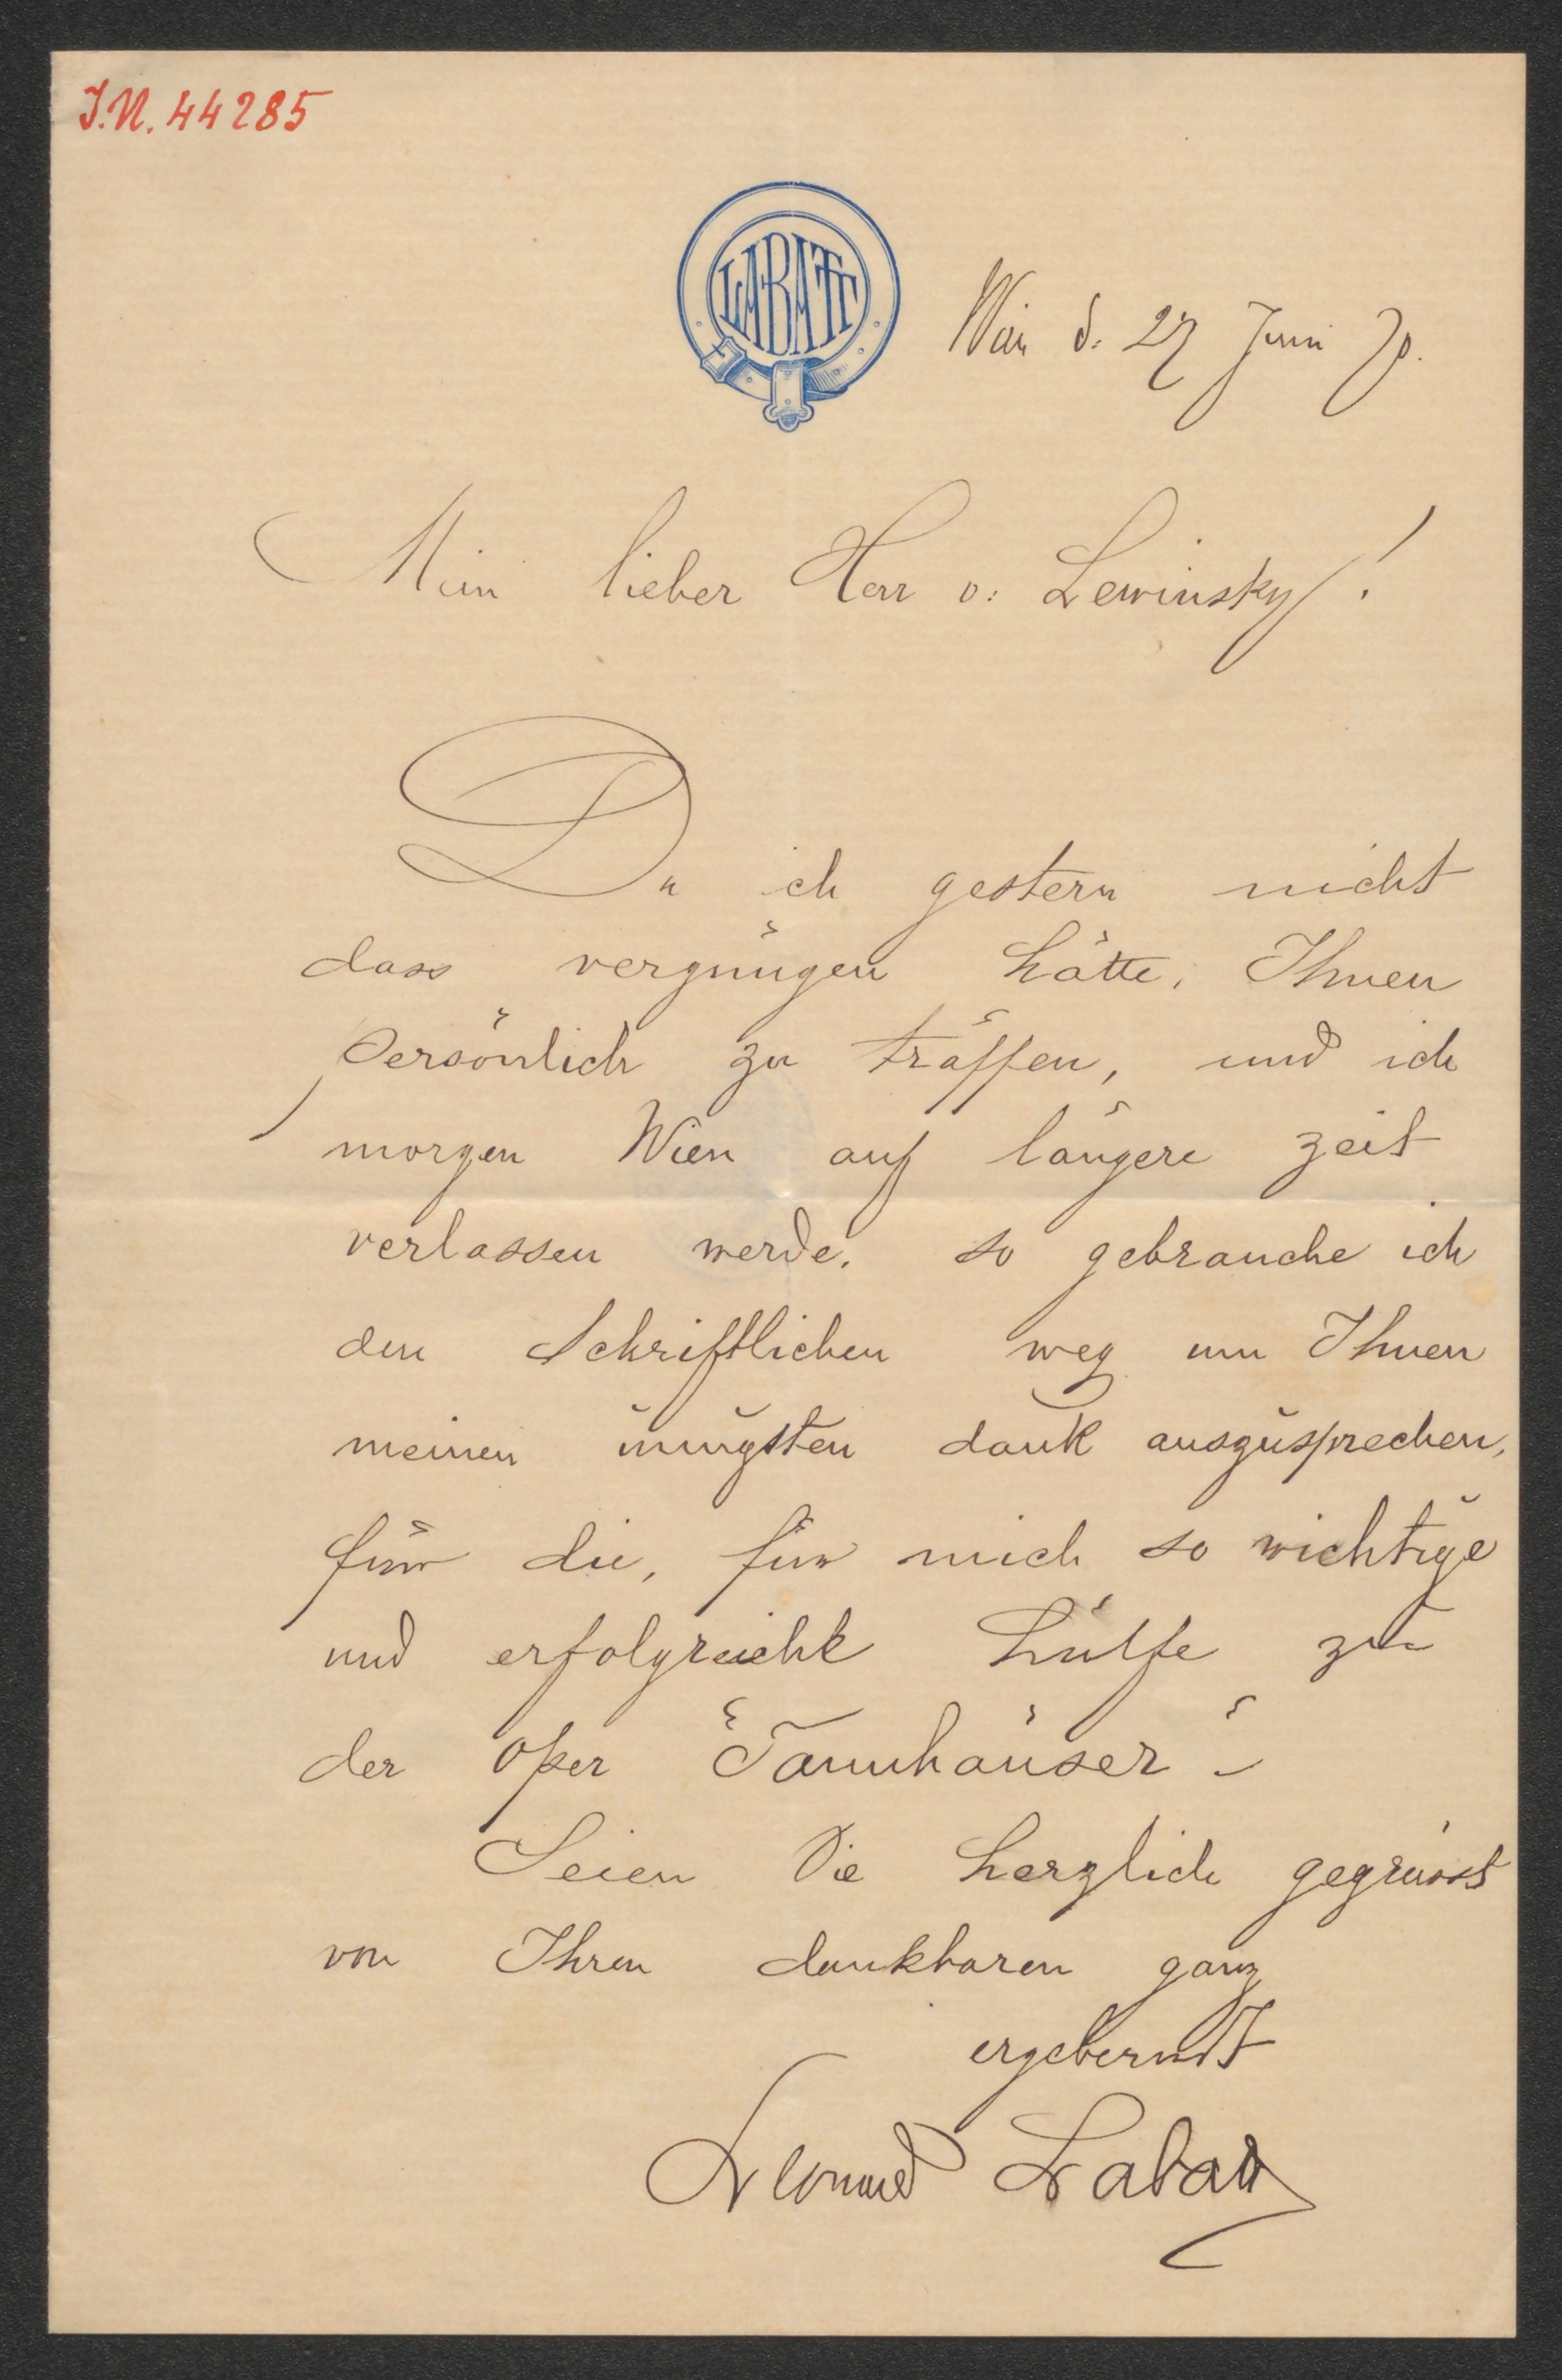 J.N. 44285
LABATT
Wien d. 27 Juni 70.
Mein lieber Herr v: Lewinsky!
Da ich gestern nicht
dass vergnügen hätte, Ihnen
persönlich zu träffen, und ich
morgen Wien auf längere zeit
verlassen werde, so gebrauche ich
den Schriftlichen weg um Ihnen
meinen innigsten dank auszusprechen,
für die, für mich so wichtige
und erfolgreiche hülfe zu
der oper "Tannhäuser"
Seien Sie herzlich gegrüsst
von Ihren dankbaren ganz
ergebenst
Leonard Labatt